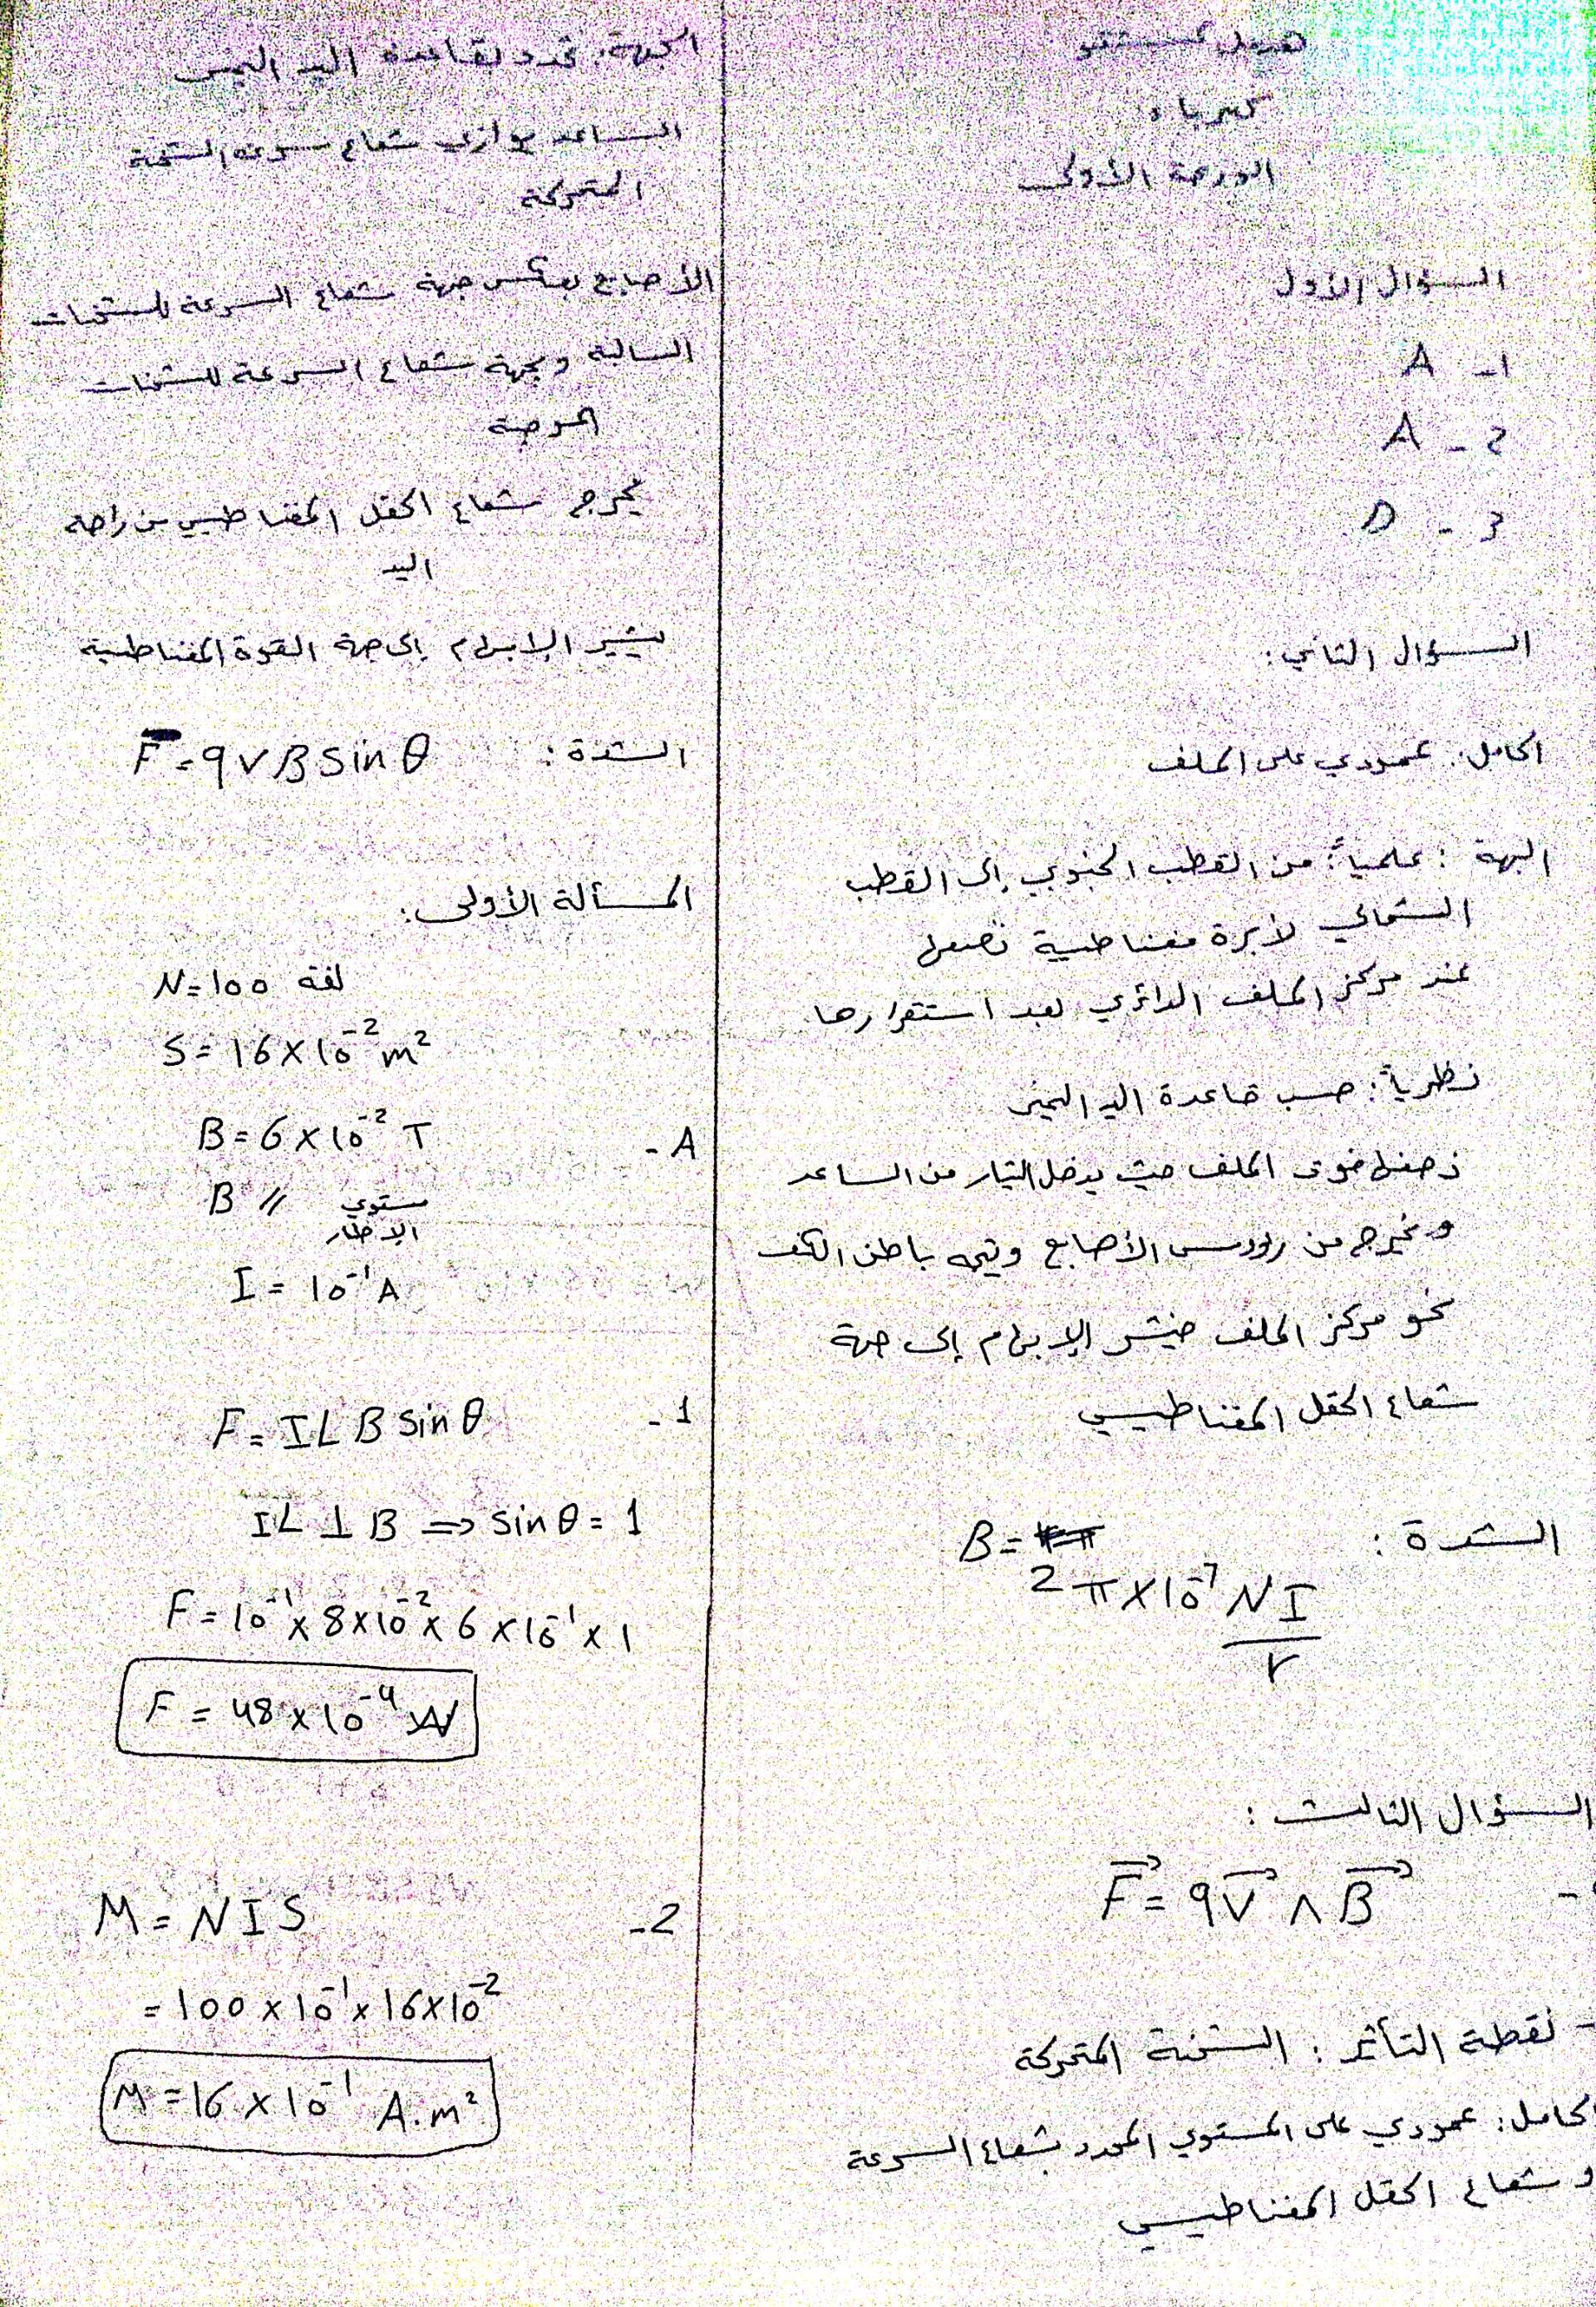 كهرباء
الدرجة الأولى
السؤال الأول
1- A
2- A
3- D
السؤال الثاني:
الحامل: عمودي على الملف
الجهة: عملياً: من القطب الجنوبي إلى القطب
الشمالي لأبرة مغناطيسية نضعها
عند مركز الملف الدائري بعد استقرارها
نظرياً: حسب قاعدة اليد اليمنى
نضعها فوق الملف حيث يدخل التيار من الساعد
ويخرج من رؤوس الأصابع ويتجه باطن الكف
نحو مركز الملف فيشير الإبهام إلى جهة
شعاع الحقل المغناطيسي
الشدة: B =
2π×10⁻⁷ NI/r
السؤال الثالث:
F⃗ = qV⃗ ∧ B⃗
- نقطة التأثير: الشحنة المتحركة
الحامل: عمودي على المستوي المحدد بشعاع السرعة
و شعاع الحقل المغناطيسي
الجهة: تحدد بقاعدة اليد اليمنى
الساعد يوازي شعاع سرعة الشحنة
المتحركة
الأصابع بعكس جهة شعاع السرعة للشحنات
السالبة وبجهة شعاع السرعة للشحنات
الموجبة
يخرج شعاع الحقل المغناطيسي من راحة
اليد
يشير الإبهام إلى جهة القوة المغناطيسية
الشدة: F = qvB sin θ
المسألة الأولى:
N=100 لفة
S = 16×10⁻² m²
A- B = 6×10⁻² T
B // مستوي
الإطار
I = 10⁻¹ A
1- F = ILB sin θ
IL ⊥ B ⇒ sin θ = 1
F = 10⁻¹ × 8×10⁻² × 6×10⁻¹ × 1
F = 48×10⁻⁴ N
2- M = NIS
= 100 × 10⁻¹ × 16×10⁻²
M = 16 × 10⁻¹ A.m²